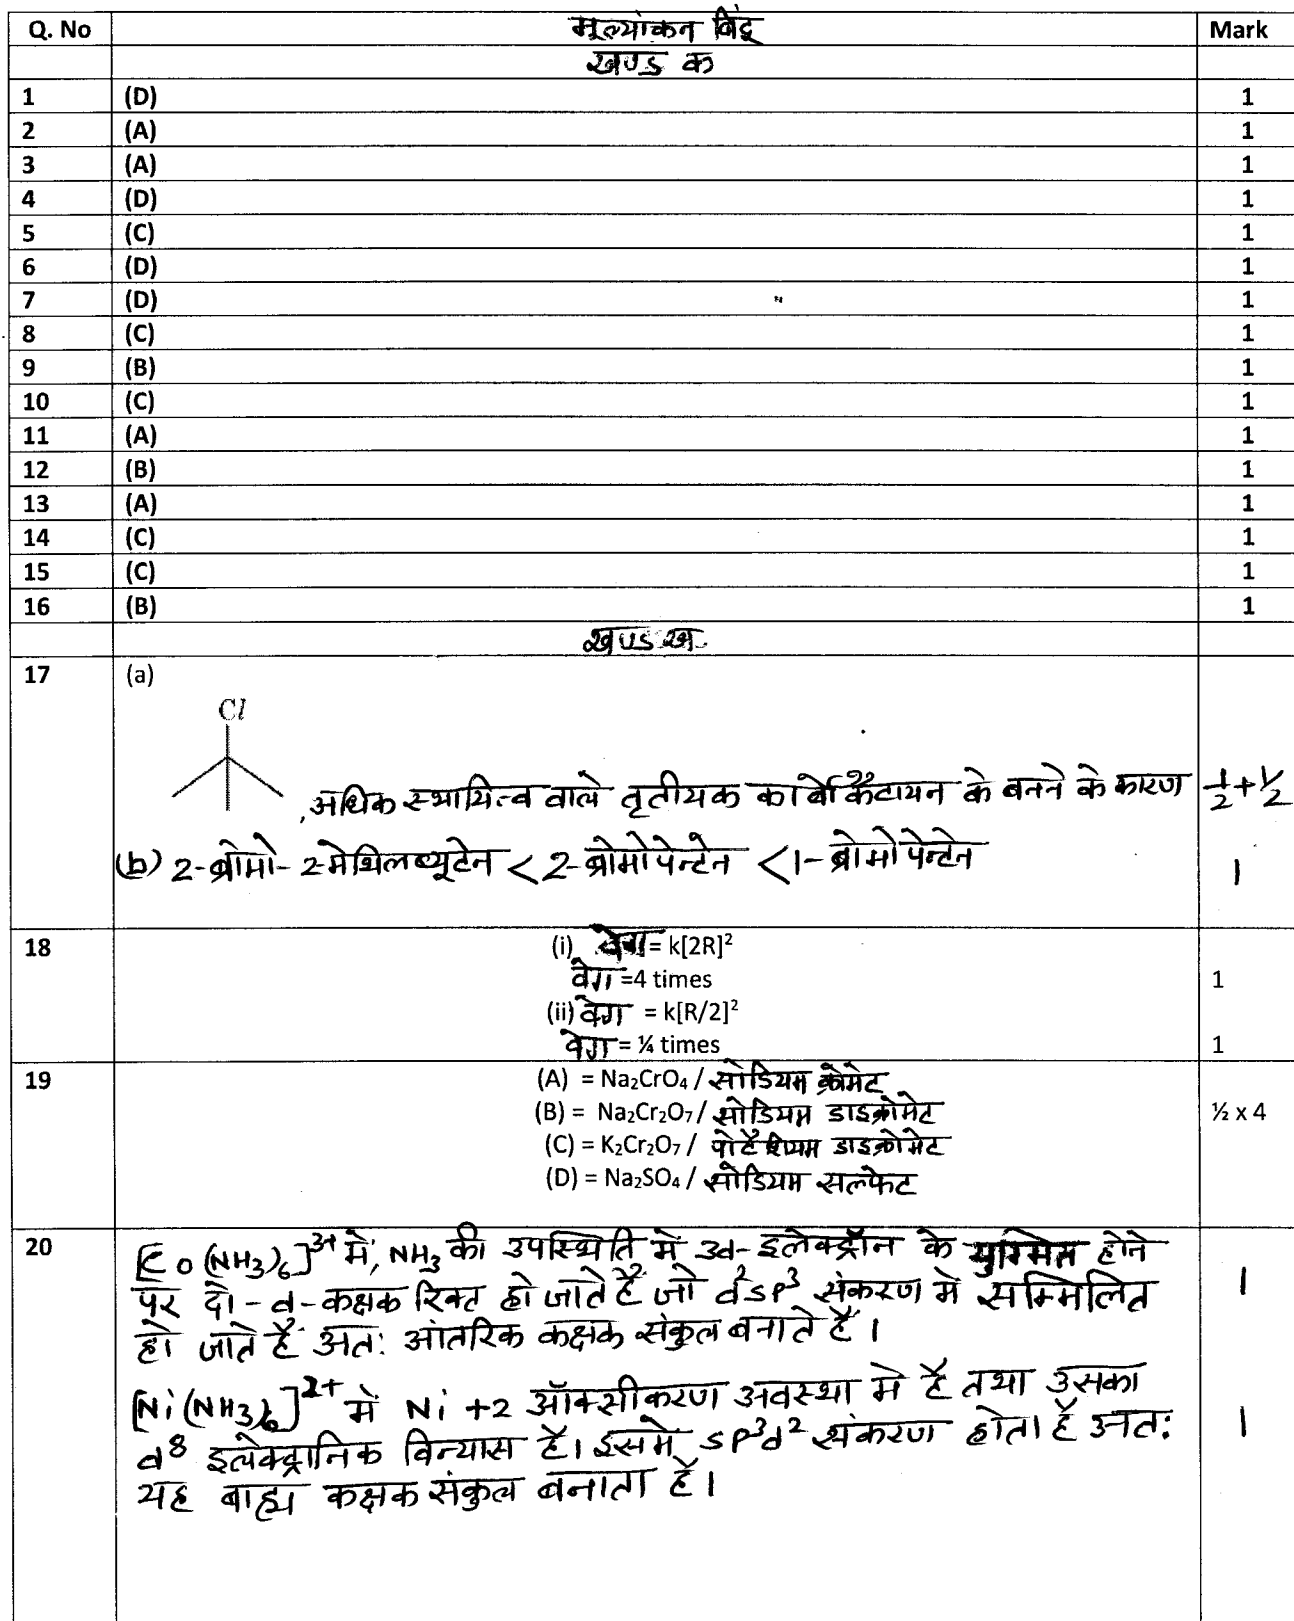 Q. No मूल्यांकन बिंदु Mark
खण्ड क
1 (D) 1
2 (A) 1
3 (A) 1
4 (D) 1
5 (C) 1
6 (D) 1
7 (D) 1
8 (C) 1
9 (B) 1
10 (C) 1
11 (A) 1
12 (B) 1
13 (A) 1
14 (C) 1
15 (C) 1
16 (B) 1
खण्ड ख
17 (a)
Cl
, अधिक स्थायित्व वाले तृतीयक कार्बोकैटायन के बनने के कारण ½+½
(b) 2-ब्रोमो-2मेथिलब्यूटेन < 2-ब्रोमोपेन्टेन < 1-ब्रोमोपेन्टेन 1
18 (i) वेग = k[2R]²
वेग =4 times 1
(ii) वेग = k[R/2]²
वेग = ¼ times 1
19 (A) = Na₂CrO₄ / सोडियम क्रोमेट
(B) = Na₂Cr₂O₇ / सोडियम डाइक्रोमेट ½ x 4
(C) = K₂Cr₂O₇ / पोटैशियम डाइक्रोमेट
(D) = Na₂SO₄ / सोडियम सल्फेट
20 [Co(NH₃)₆]³⁺ में, NH₃ की उपस्थिति में 3d-इलेक्ट्रॉन के युग्मित होने
पर दो-d-कक्षक रिक्त हो जाते हैं जो d²sp³ संकरण में सम्मिलित 1
हो जाते हैं अत: आंतरिक कक्षक संकुल बनाते हैं।
[Ni(NH₃)₆]²⁺ में Ni +2 ऑक्सीकरण अवस्था में है तथा उसका
d⁸ इलेक्ट्रानिक विन्यास है। इसमें sp³d² संकरण होता है अत: 1
यह बाह्य कक्षक संकुल बनाता है।